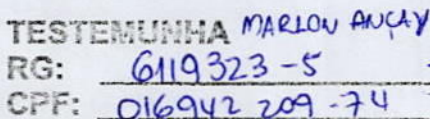 TESTEMUNHA MARLON ANÇAY
RG: 6119323-5
CPF: 016942 209-74